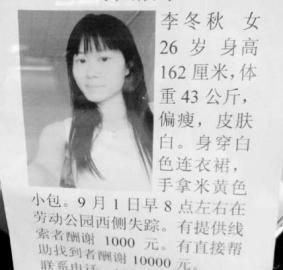 李冬秋 女
26 岁 身高
162 厘米,体
重 43 公斤,
偏瘦,皮肤
白。身穿白
色连衣裙,
手拿米黄色
小包。9 月 1 日早 8 点左右在
劳动公园西侧失踪。有提供线
索者酬谢 1000 元。有直接帮
助找到者酬谢 10000 元。
联系电话